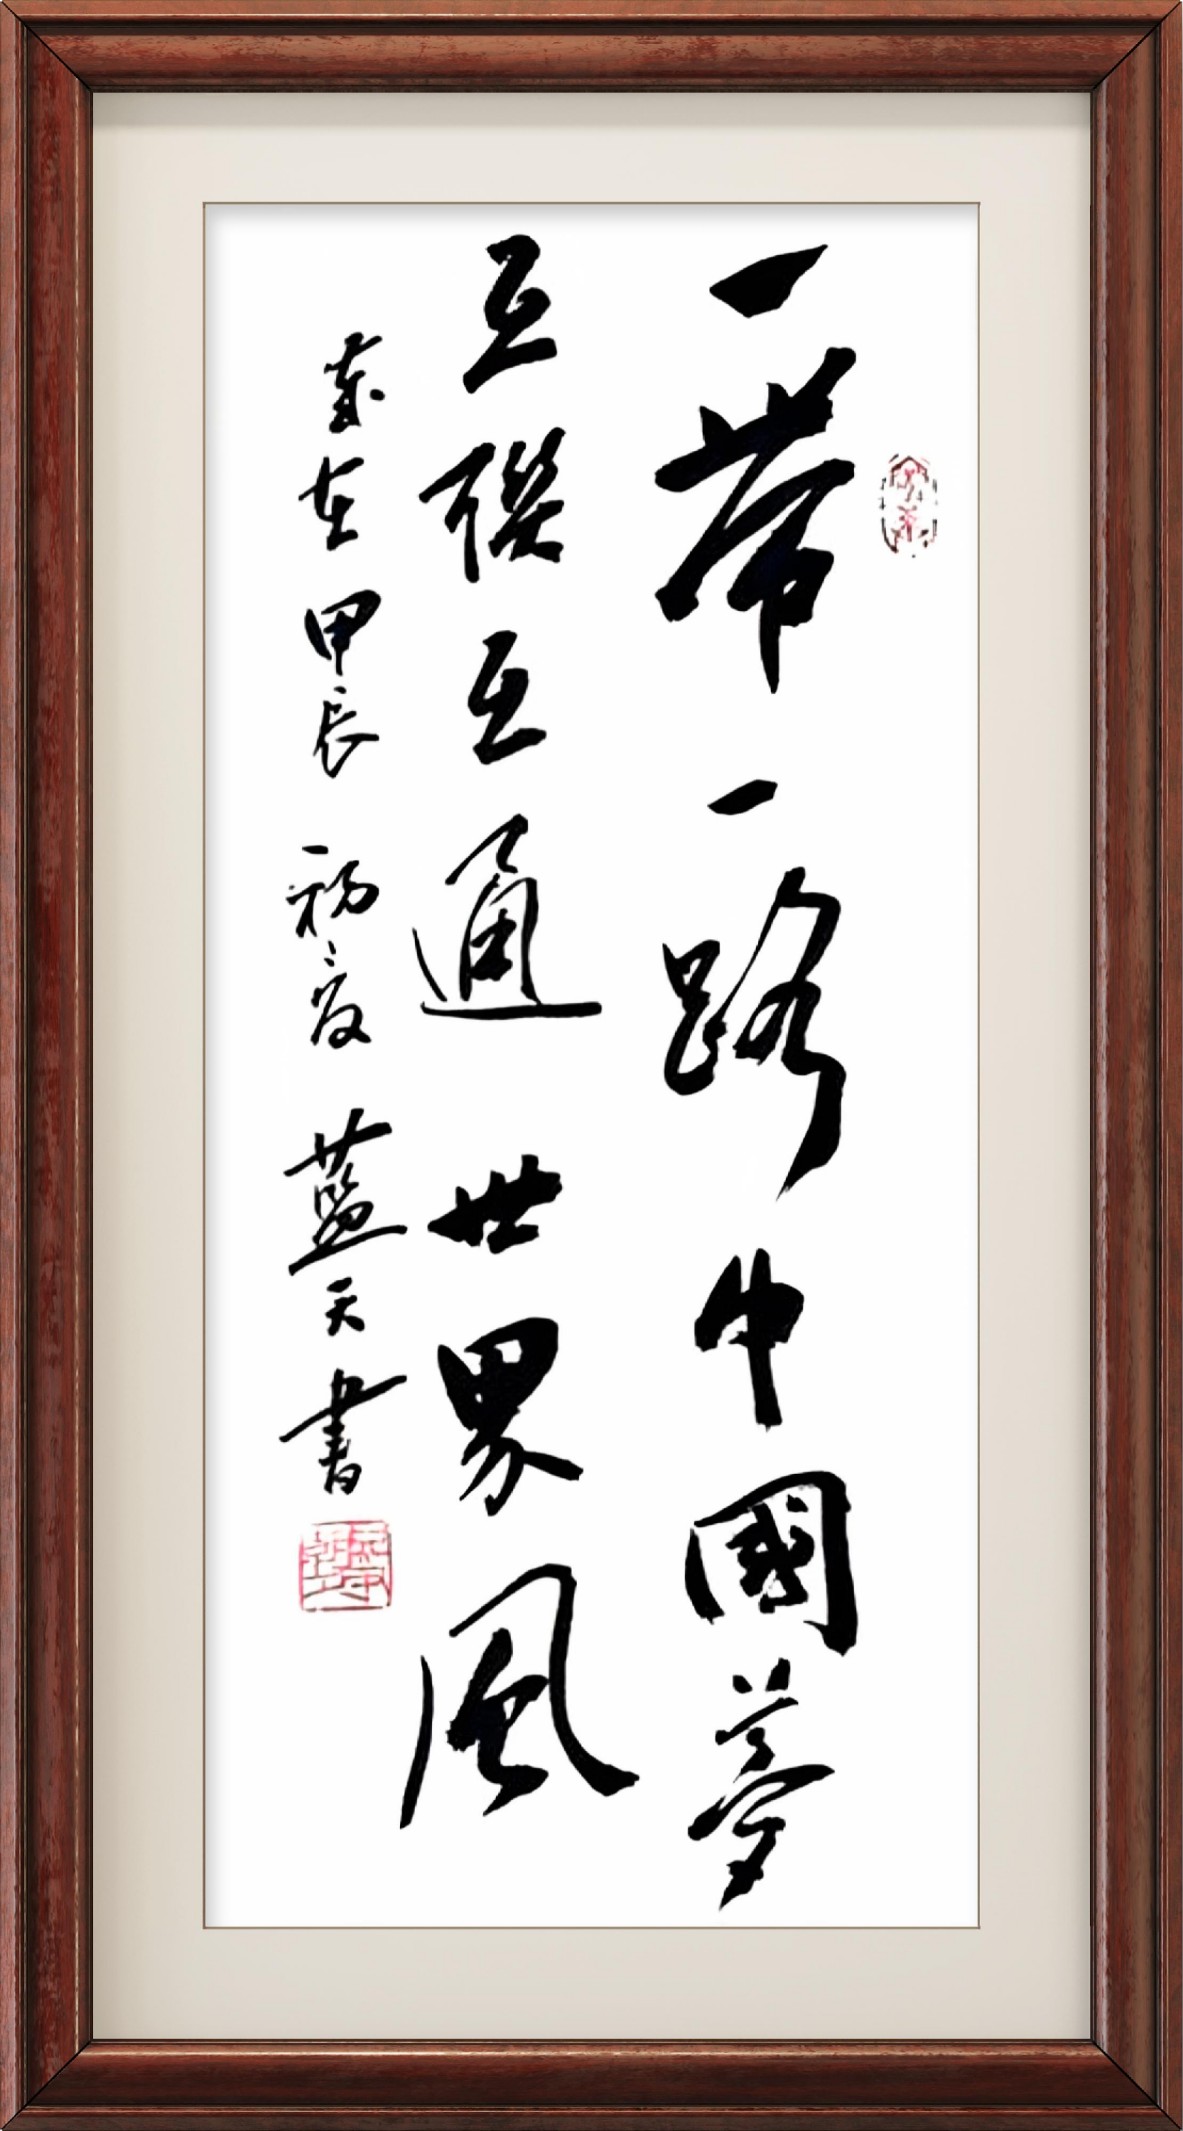 一帶一路中國夢
互聯互通世界風
歲在甲辰初夏 藍天書